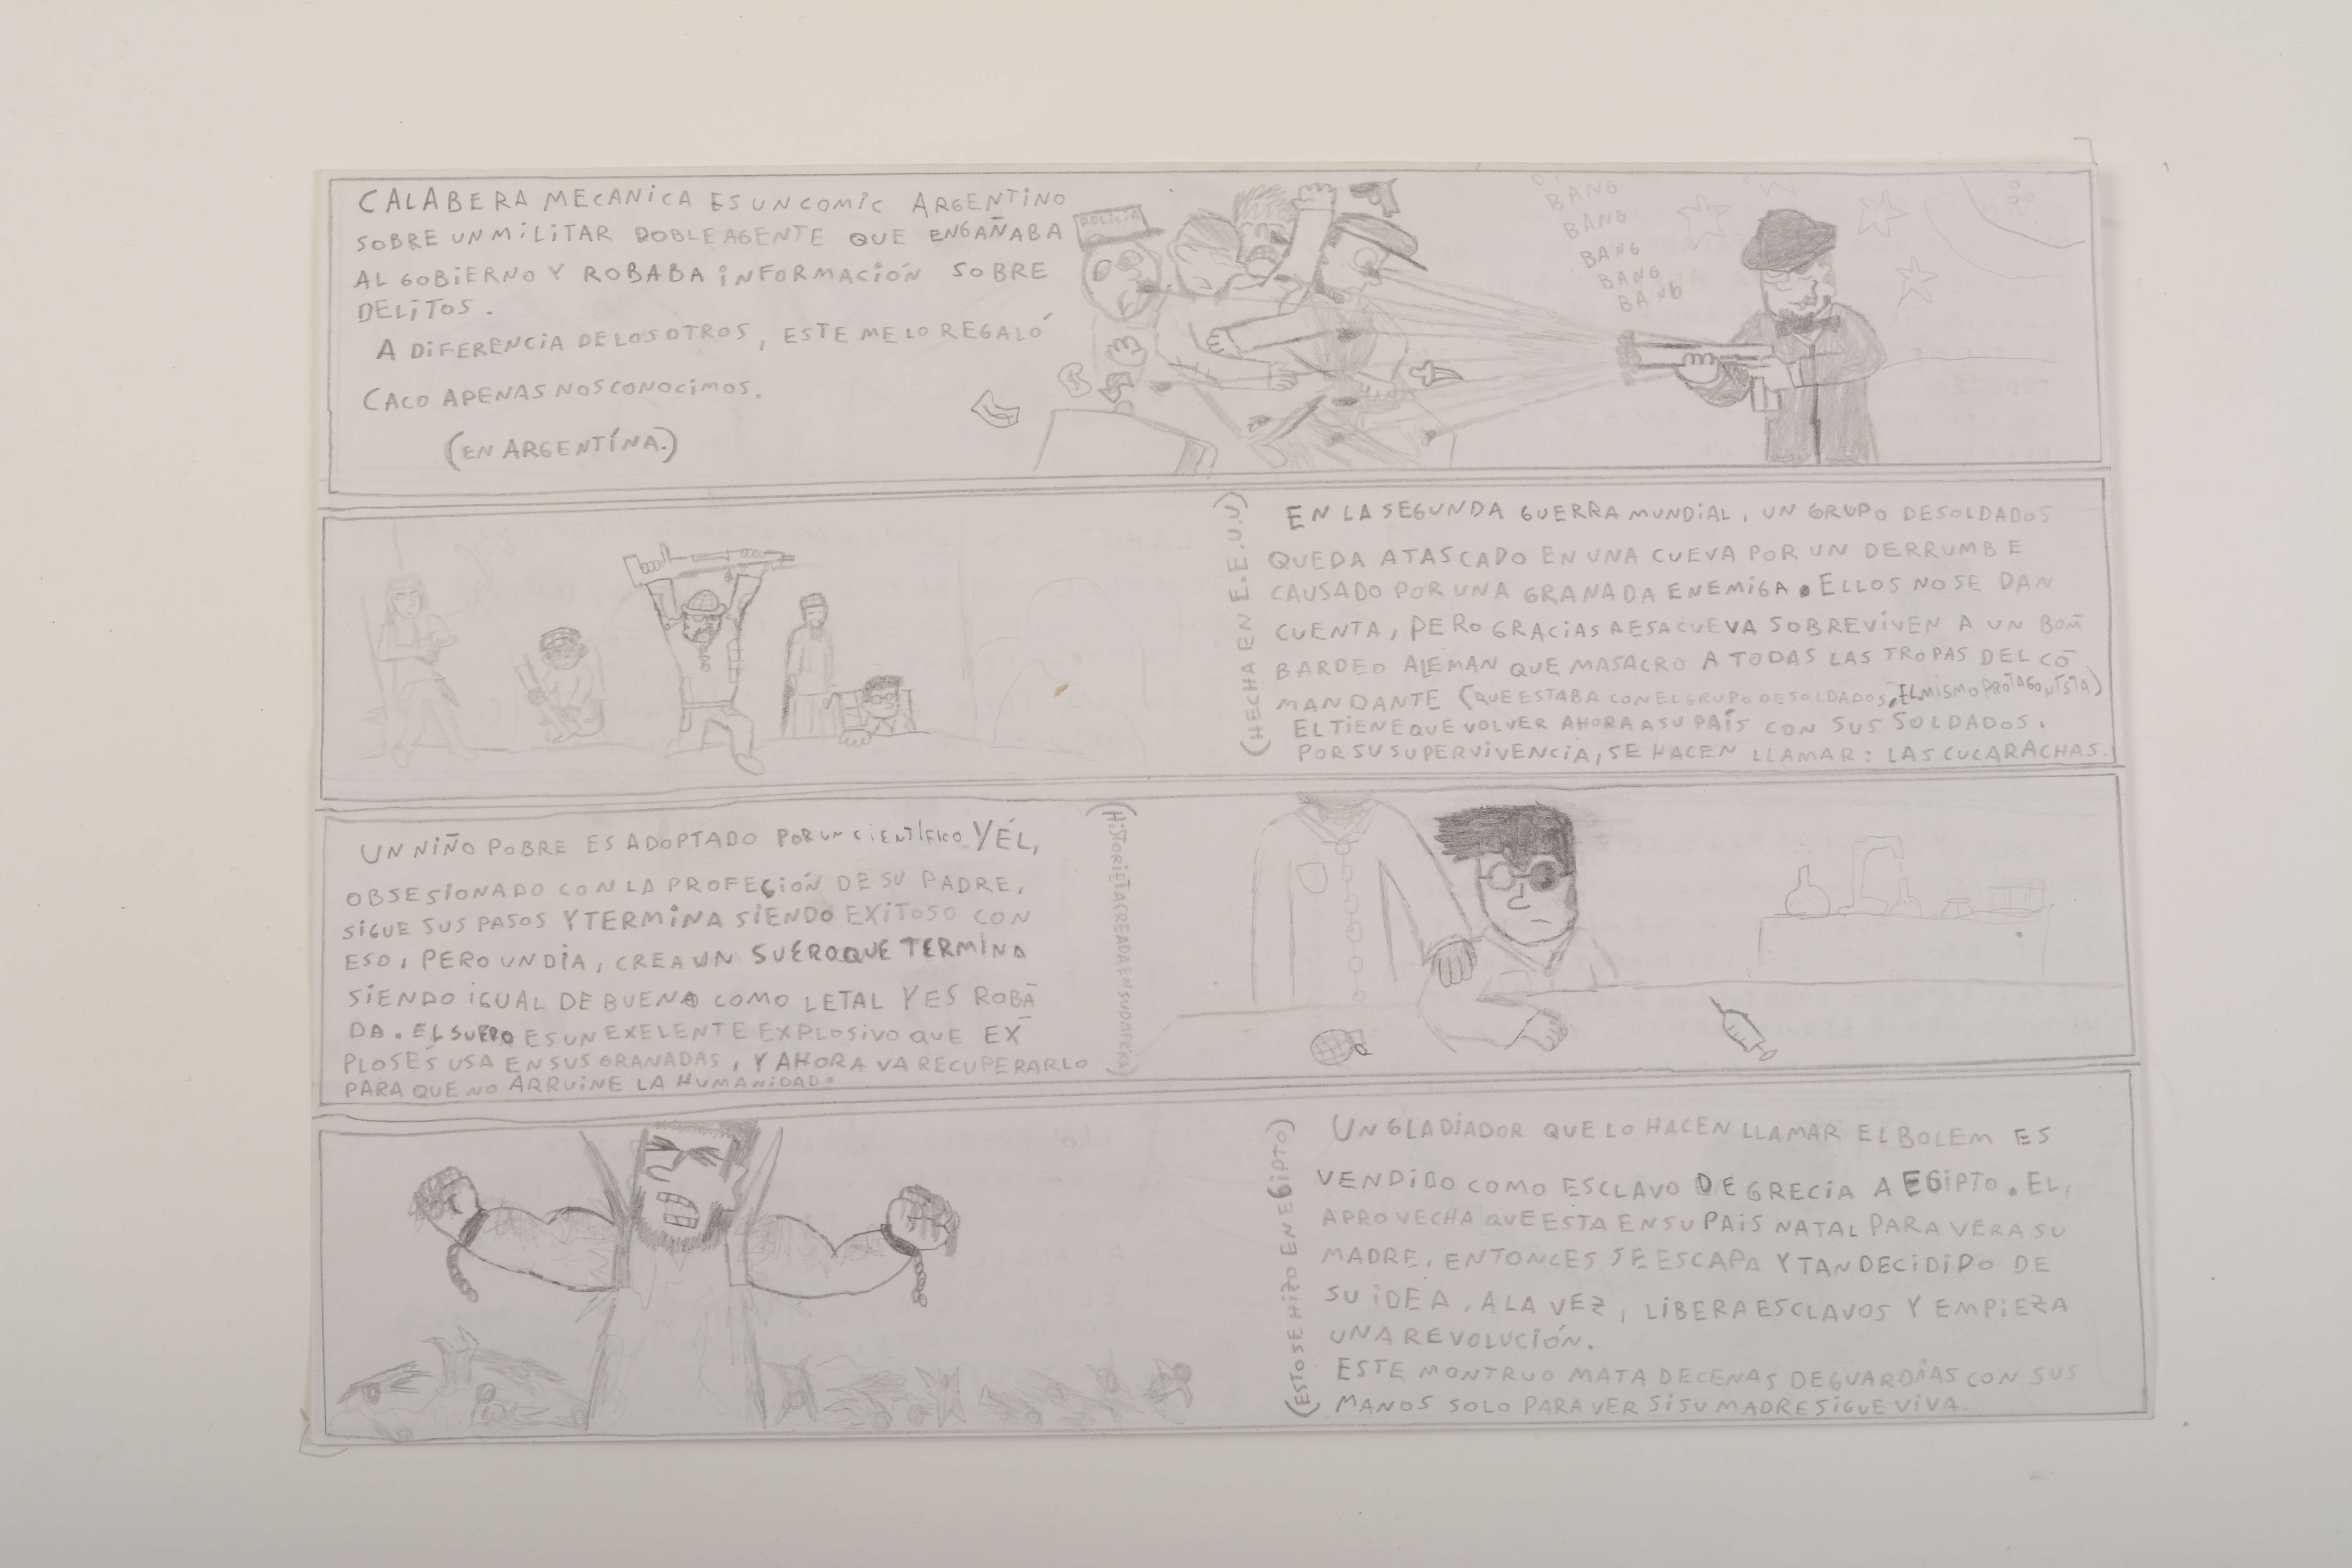 CALABERA MECANICA ES UN COMIC ARGENTINO
SOBRE UN MILITAR DOBLE AGENTE QUE ENGAÑABA
AL GOBIERNO Y ROBABA INFORMACIÓN SOBRE
DELITOS.
A DIFERENCIA DE LOS OTROS, ESTE ME LO REGALÓ
CACO APENAS NOS CONOCIMOS.
(EN ARGENTÍNA.)
POLICIA
BANG
BANG
BANG
BANG
BANG
(HECHA EN E.E.U.U)
EN LA SEGUNDA GUERRA MUNDIAL, UN GRUPO DE SOLDADOS
QUEDA ATASCADO EN UNA CUEVA POR UN DERRUMBE
CAUSADO POR UNA GRANADA ENEMIGA. ELLOS NO SE DAN
CUENTA, PERO GRACIAS A ESA CUEVA SOBREVIVEN A UN BOM
BARDEO ALEMAN QUE MASACRO A TODAS LAS TROPAS DEL CO
MANDANTE (QUE ESTABA CON EL GRUPO DE SOLDADOS, EL MISMO PROTAGONISTA)
EL TIENE QUE VOLVER AHORA A SU PAÍS CON SUS SOLDADOS.
POR SU SUPERVIVENCIA, SE HACEN LLAMAR: LAS CUCARACHAS.
UN NIÑO POBRE ES ADOPTADO POR UN CIENTÍFICO Y ÉL,
OBSESIONADO CON LA PROFECIÓN DE SU PADRE,
SIGUE SUS PASOS Y TERMINA SIENDO EXITOSO CON
ESO, PERO UN DIA, CREA UN SUERO QUE TERMINA
SIENDO IGUAL DE BUENO COMO LETAL Y ES ROBA
DA. EL SUERO ES UN EXELENTE EXPLOSIVO QUE EX
PLOSES USA EN SUS GRANADAS, Y AHORA VA RECUPERARLO
PARA QUE NO ARRUINE LA HUMANIDAD.
(HISTORIETA CREADA EN SUDAFRICA)
(ESTO SE HIZO EN EGIPTO)
UN GLADIADOR QUE LO HACEN LLAMAR EL BOLEM ES
VENDIDO COMO ESCLAVO DE GRECIA A EGIPTO. EL,
APROVECHA QUE ESTA EN SU PAIS NATAL PARA VER A SU
MADRE, ENTONCES SE ESCAPA Y TAN DECIDIDO DE
SU IDEA, A LA VEZ, LIBERA ESCLAVOS Y EMPIEZA
UNA REVOLUCIÓN.
ESTE MONTRUO MATA DECENAS DE GUARDIAS CON SUS
MANOS SOLO PARA VER SI SU MADRE SIGUE VIVA.